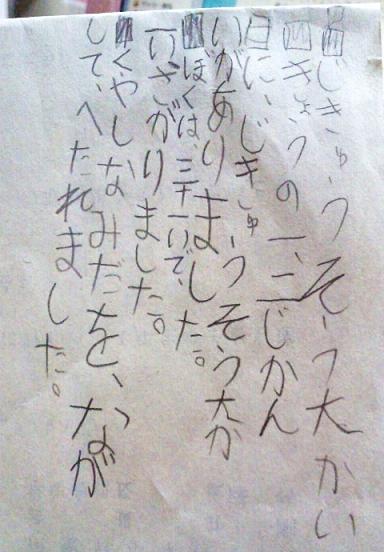 じきゅうそう大かい
きょうの一、二じかん
目に、じきゅうそう大か
いがありました。
ぼくは、三十一いで、
一いさがりました。
くやしなみだを、なが
して、へたれました。